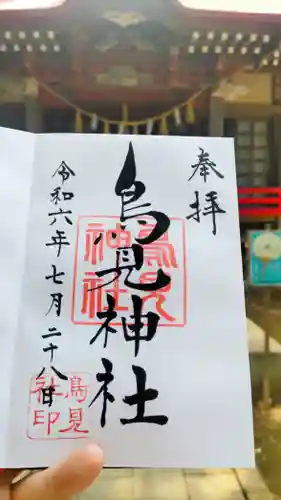 奉拝
鳥見神社
令和六年七月二十八日
鳥見
神社
鳥見
社印